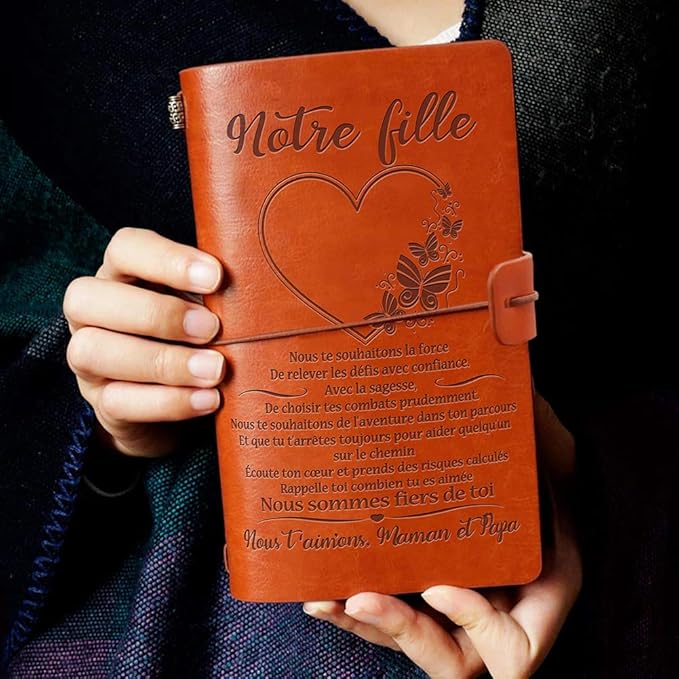 Notre fille
Nous te souhaitons la force
De relever les défis avec confiance.
Avec la sagesse,
De choisir tes combats prudemment.
Nous te souhaitons de l'aventure dans ton parcours
Et que tu t'arrêtes toujours pour aider quelqu'un
sur le chemin
Écoute ton cœur et prends des risques calculés
Rappelle toi combien tu es aimée
Nous sommes fiers de toi
Nous t'aimons, Maman et Papa